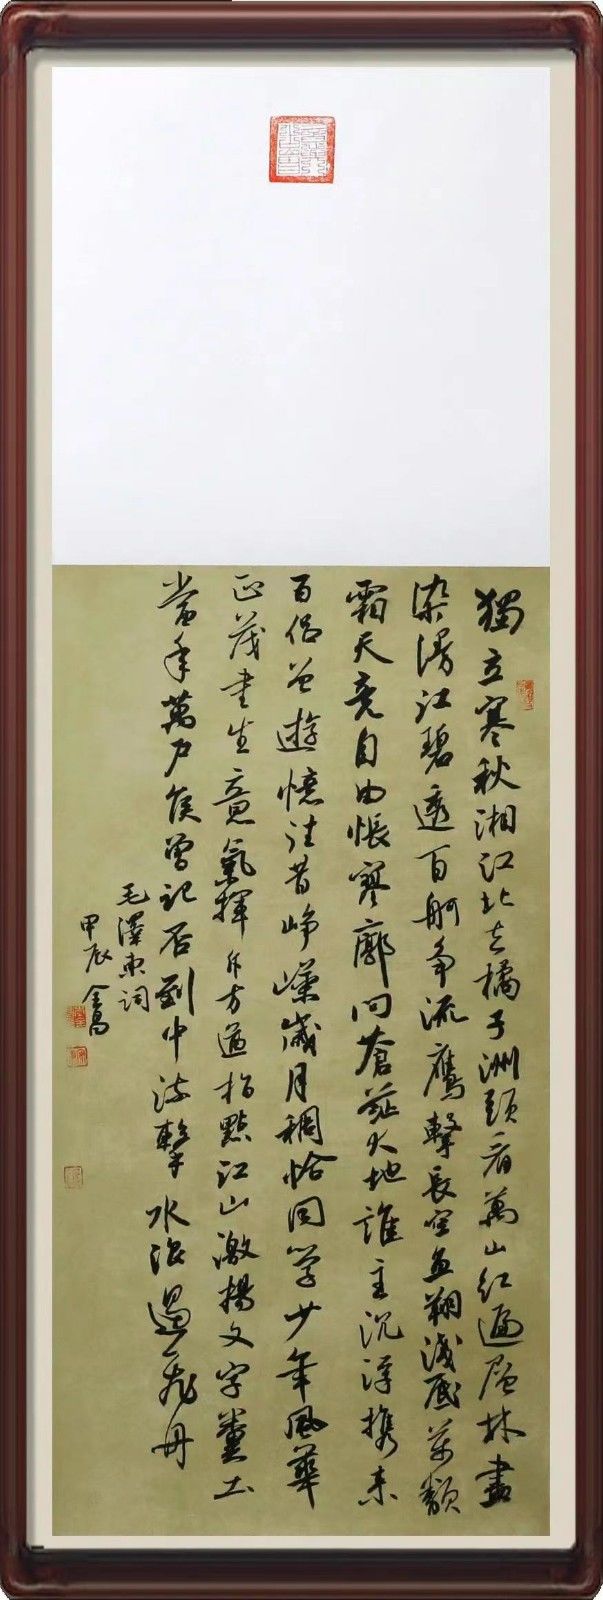 獨立寒秋湘江北去橘子洲頭看萬山红遍層林盡
染漫江碧透百舸争流鷹擊長空魚翔淺底萬類
霜天竞自由悵寥廓问蒼茫大地誰主沉浮携来
百侣曾遊憶往昔崢嶸歲月稠恰同学少年風華
正茂書生意氣揮斥方遒指點江山激揚文字糞土
當年萬户侯曾记否到中流擊水浪遏飛舟
毛澤東词
甲辰